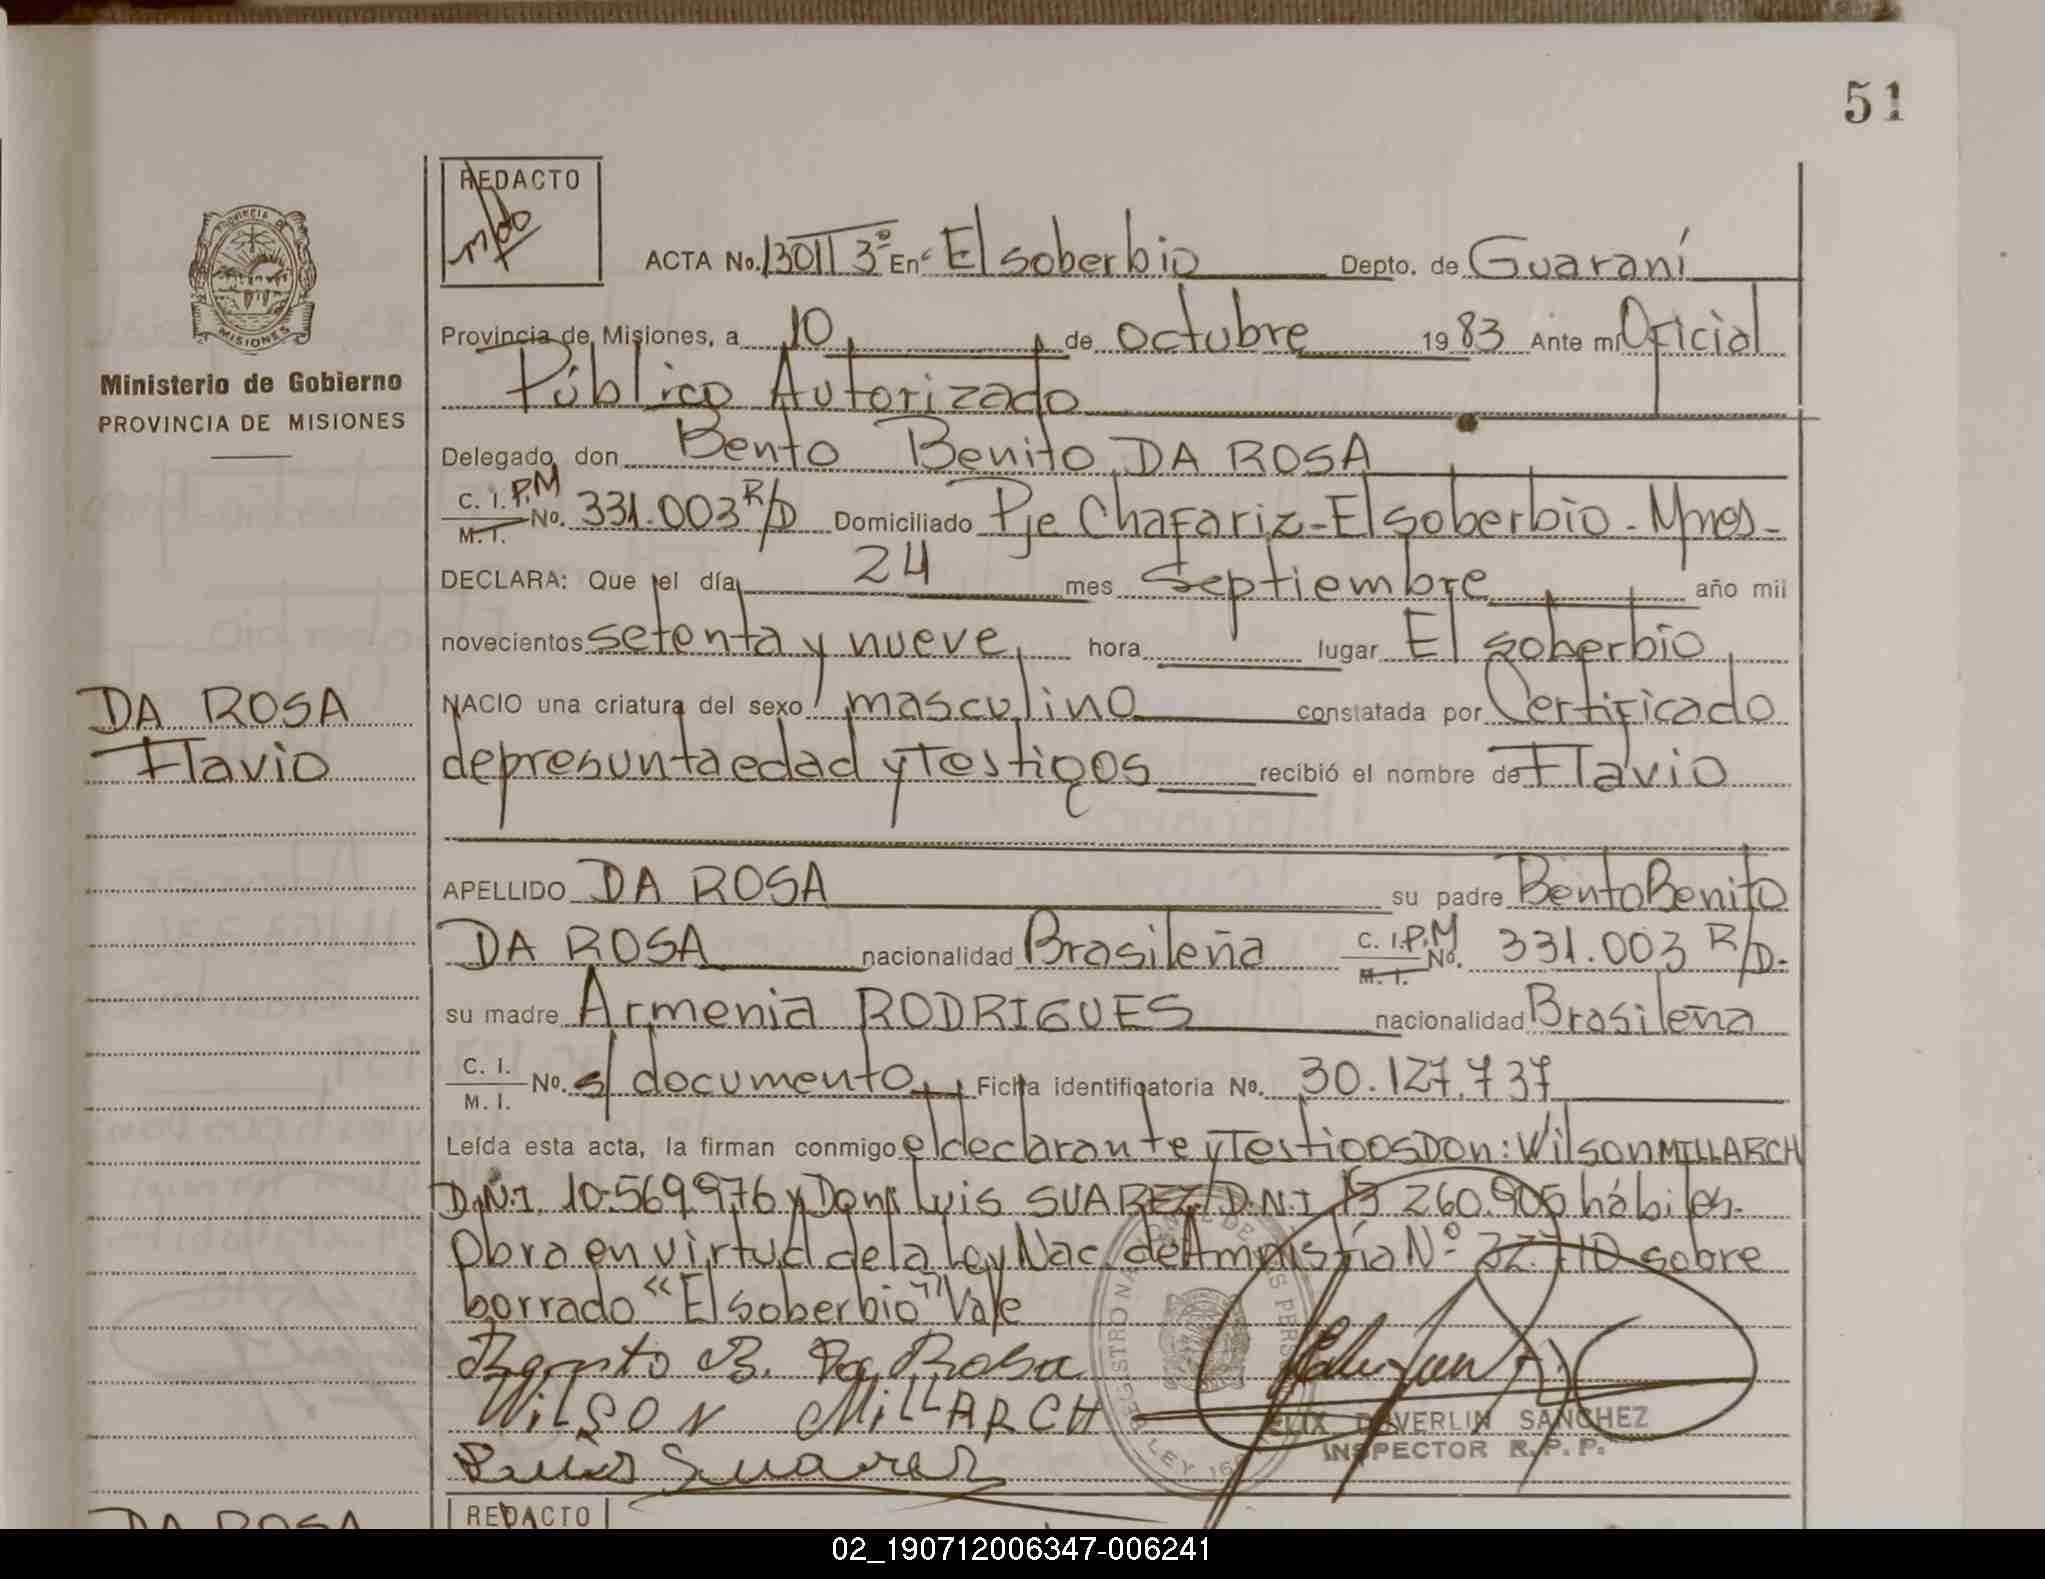 51
REDACTO
ACTA No. 1301 T 3º En El soberbio Depto. de Guaraní
Provincia de Misiones, a 10 de octubre 1983 Ante mi Oficial
Público Autorizado
Ministerio de Gobierno
PROVINCIA DE MISIONES
Delegado don Bento Benito DA ROSA
C. I. P.M No. 331.003 R/D Domiciliado Pje Chafariz - El soberbio - Mnes -
M. I.
DECLARA: Que el día 24 mes Septiembre año mil
novecientos setenta y nueve hora lugar El soberbio
DA ROSA
Flavio
NACIO una criatura del sexo masculino constatada por Certificado
de presunta edad y Testigos recibió el nombre de Flavio
APELLIDO DA ROSA su padre Bento Benito
DA ROSA nacionalidad Brasileña C. I. P.M No. 331.003 R/D.
M. I.
su madre Armenia RODRIGUES nacionalidad Brasileña
C. I.
M. I. No. s/ documento Ficha identificatoria No. 30.127.737
Leída esta acta, la firman conmigo el declarante y Testigos Don: Wilson MILLARCH
D.N.I. 10.569.976 y Don Luis SUAREZ D.N.I 13 260.905 hábiles.
Obra en virtud de la Ley Nac. de Amnistía Nº 22.710 sobre
borrado "El soberbio" Vale
Bento B. Da Rosa
WILSON MILLARCH
Luis Suarez
DAVERLIN SANCHEZ
INSPECTOR R. P. P.
DA ROSA
REDACTO
02_190712006347-006241